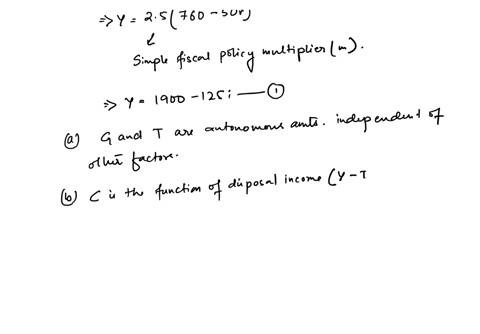 => Y = 2.5(760 - 50i)
Simple fiscal policy multiplier (m).
=> Y = 1900 - 125i — ①
(a) G and T are autonomous amts. independent of
other factors.
(b) C is the function of disposal income (Y - T